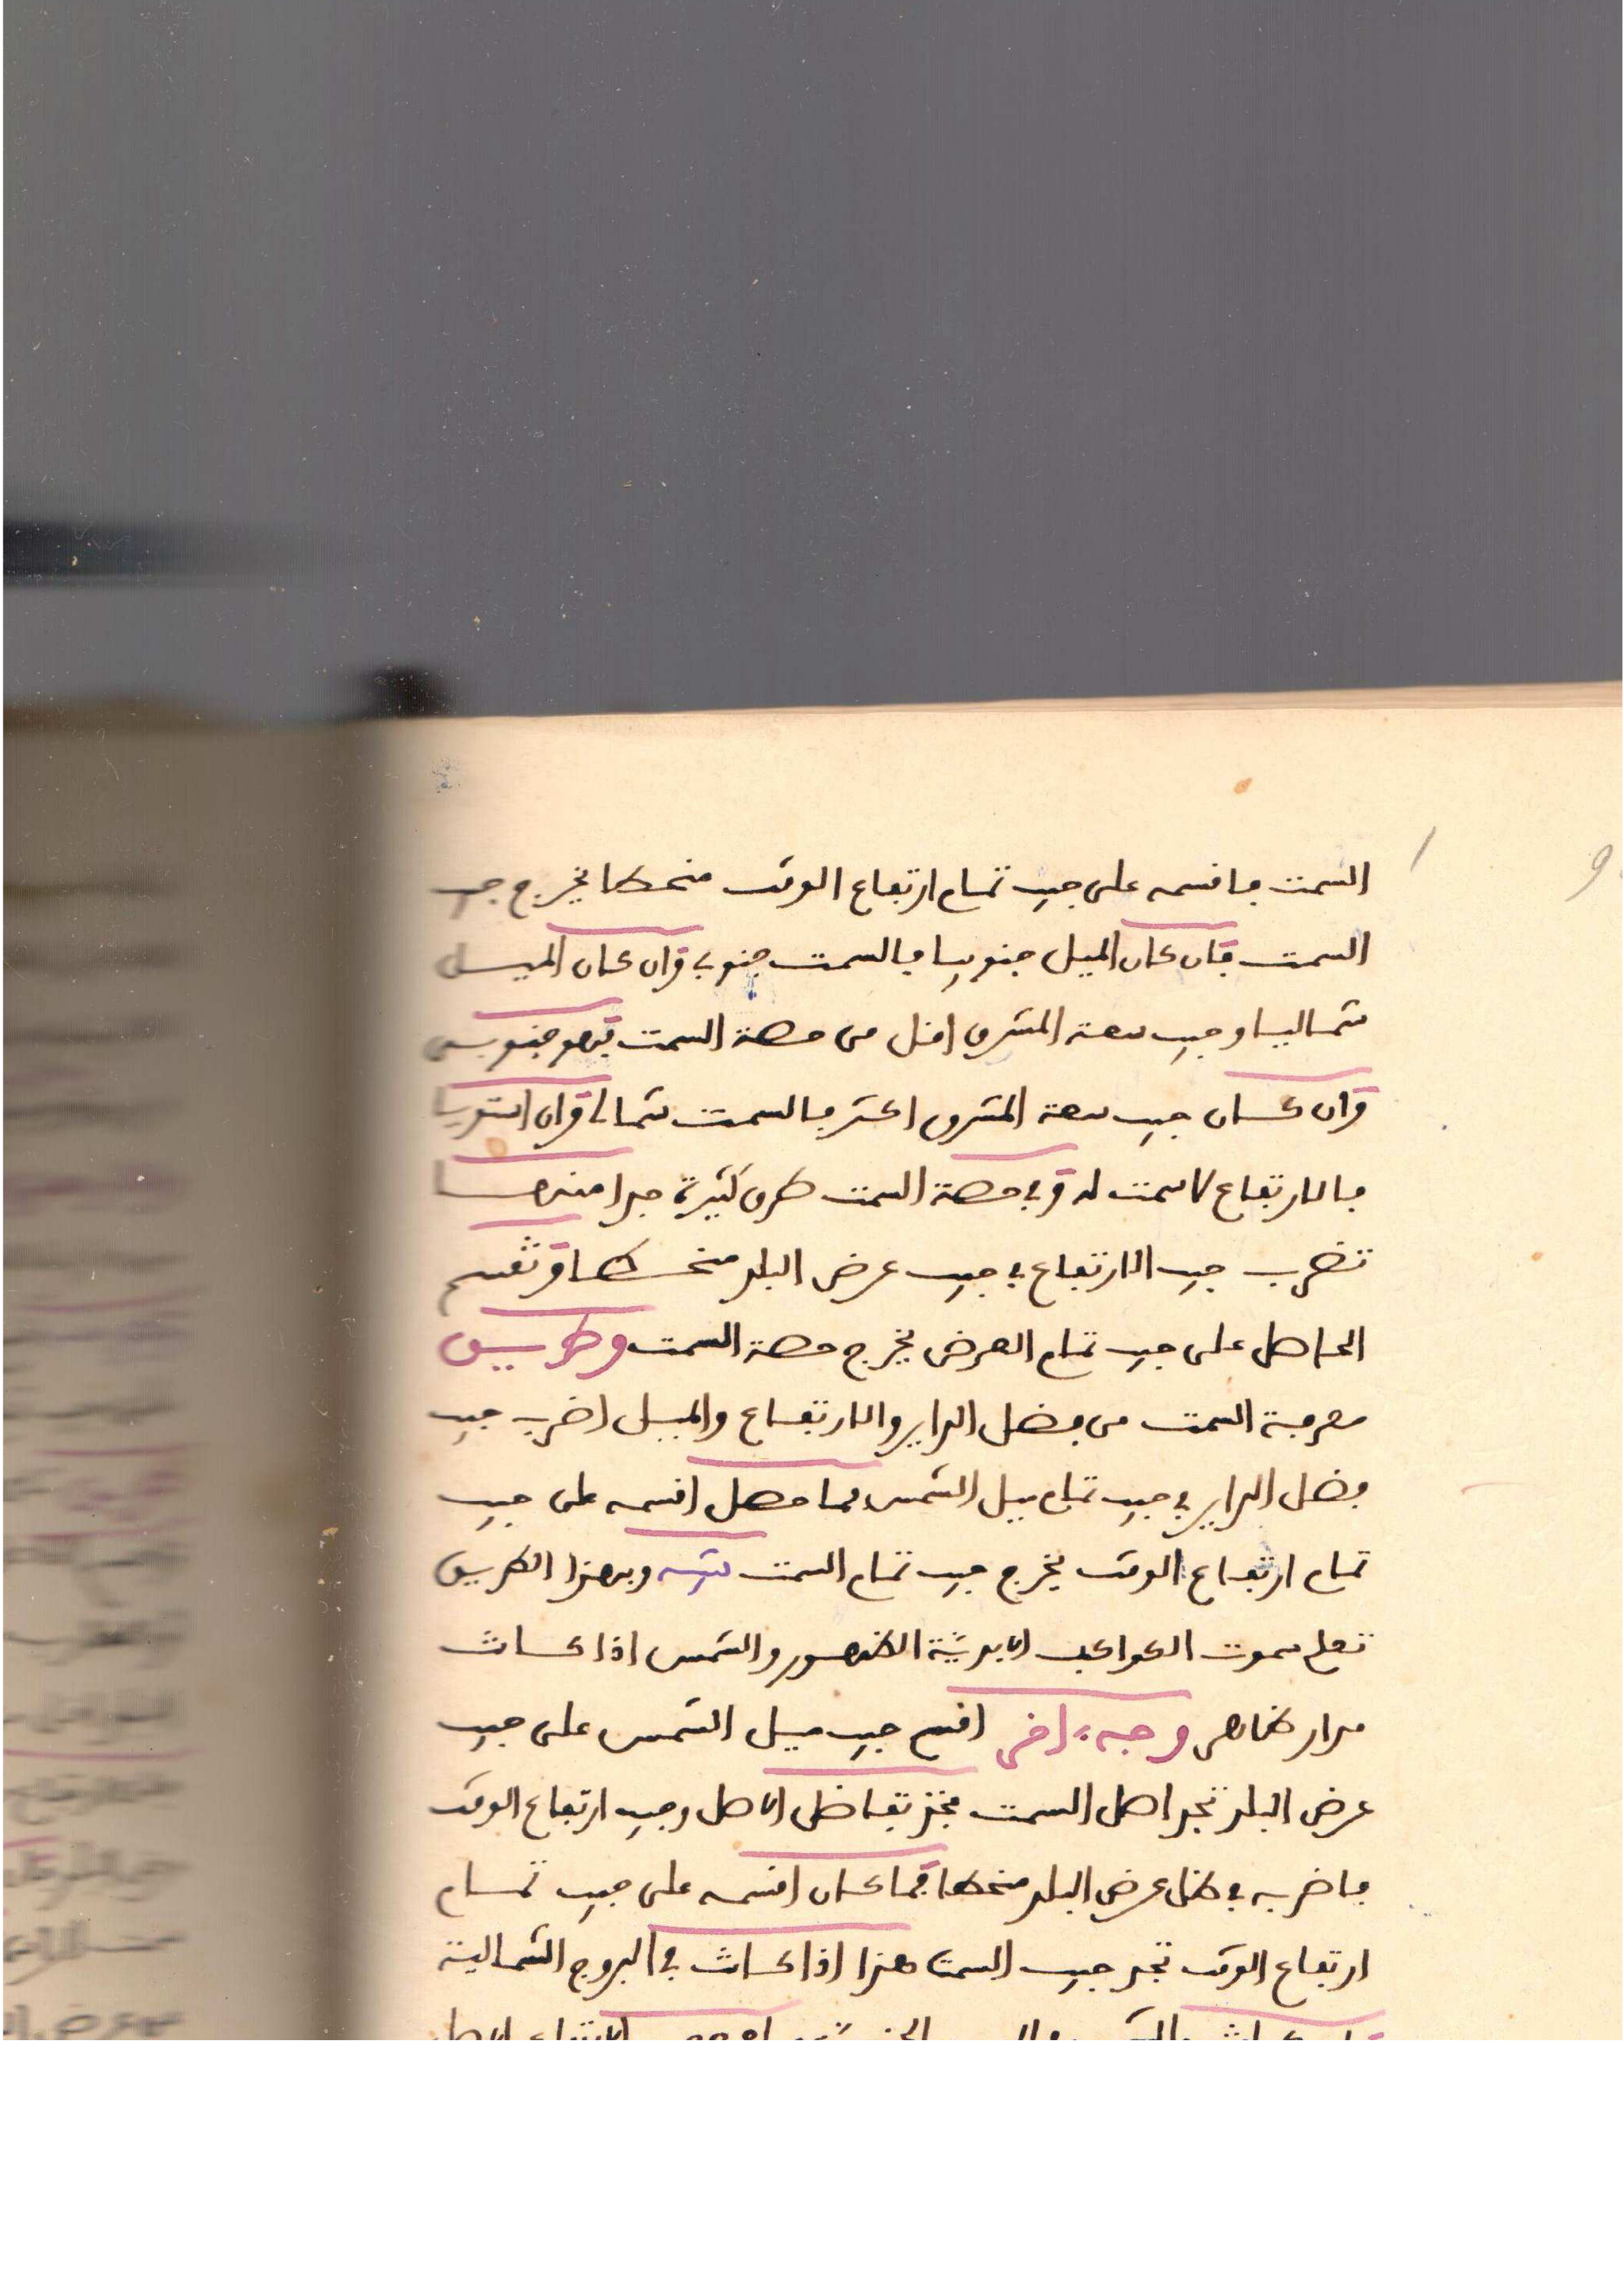 السمت فاقسمه على جيب تمام ارتفاع الوقت منحطا يخرج جيب
السمت فان كان الميل جنوبيا فالسمت جنوبي وان كان الميل
شماليا وجيب سعة المشرق اقل من حصة السمت فهو جنوبي
وان كان جيب سعة المشرق اكثر فالسمت شمالي وان استويا
فالارتفاع لا سمت له وفي حصة السمت طرق كثيرة جدا منها
تضرب جيب الارتفاع في جيب عرض البلد منحطا وتقسم
الحاصل على جيب تمام العرض يخرج حصة السمت وطريق
معرفة السمت من فضل الداير والارتفاع والميل اضرب جيب
فضل الداير في جيب تمام ميل الشمس فما حصل اقسمه على جيب
تمام ارتفاع الوقت يخرج جيب تمام السمت وبهذا الطريق
تعلم سموت الكواكب الابدية الظهور والشمس اذا كانت
مدار ظاهر وجه ءاخر اقسم جيب ميل الشمس على جيب
عرض البلد تجد اصل السمت فخذ تفاضل الاصل وجيب ارتفاع الوقت
فاضربه في ظل عرض البلد منحطا فما كان اقسمه على جيب تمام
ارتفاع الوقت تجد جيب السمت هذا اذا كانت في البروج الشمالية